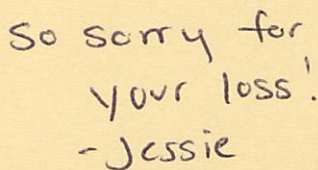 So sorry for
your loss!
-Jessie